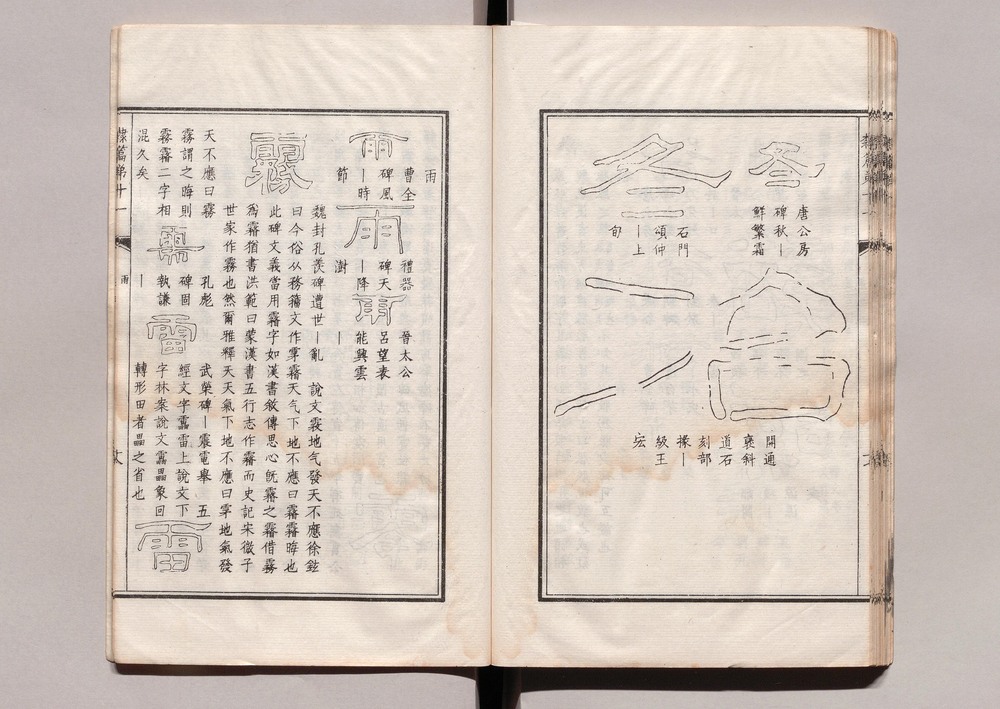 冬
唐公房
碑秋丨
鮮繁霜
冶
開通
褒斜
道石
刻部
掾丨
級王
宏
冬
石門
頌仲
丨上
旬
隸篇第十一
雨
雨
曹全
碑風
丨時
節
雨
禮器
碑天
丨降
澍
雨
晉太公
呂望表
能興雲
丨
霧
魏封孔羨碑遭世丨亂 說文霚地气發天不應徐鉉
曰今俗从務籒文作雺霿天气下地不應曰霿霿晦也
此碑文義當用霿字如漢書敘傳思心旣霿之霿借霧
爲霿猶書洪範曰蒙漢書五行志作霿而史記宋微子
世家作霧也然爾雅釋天天氣下地不應曰雺地氣發
天不應曰霧
霧謂之晦則
霧霿二字相
混久矣
需
孔彪
碑固
執謙
丨
雷
武榮碑丨震電舉 五
經文字靁雷上說文下
字林案說文靁畾象回
轉形田者畾之省也
雷
隸篇第十一
雨